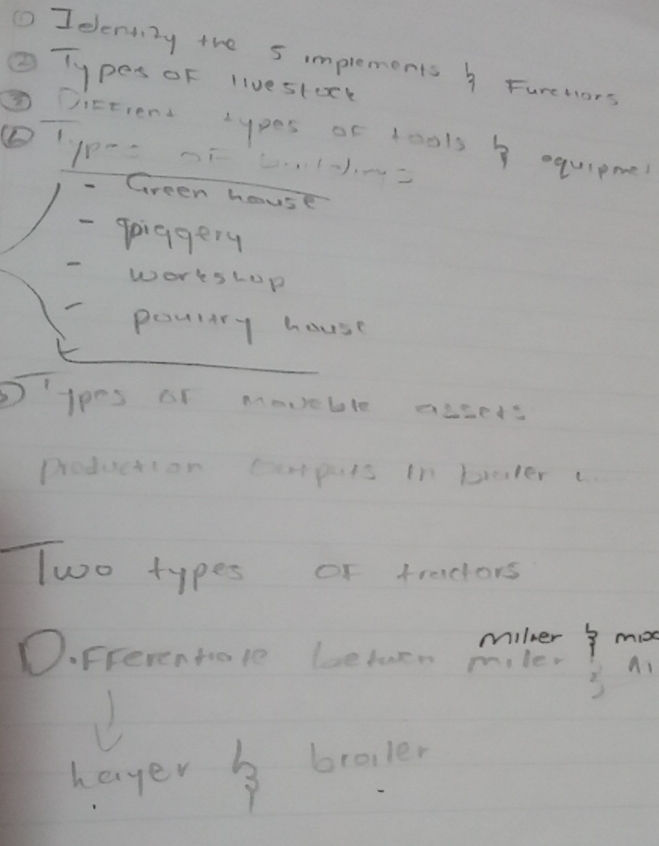 ① Identify the 5 implements & Functions
② Types of livestock
③ Different types of tools & equipme
④ Types of buildings
- Green house
- piggery
- workshop
- poultry house
Types of moveble assets
production outputs in broiler
Two types of tractors
Differentiate between miler &
milker & mix
hayer & broiler